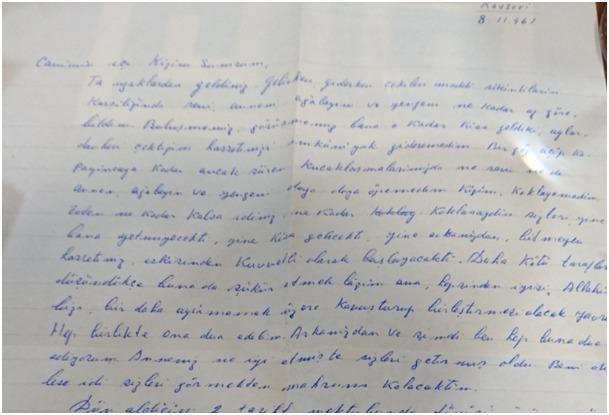 Kayseri
8.11.961
Canımın içi Kızım
Ta uzaklardan geldiniz giderken çekilen maddi sıkıntıların
karşılığında seni, annem, ağabeyin ve yengem ne kadar az göre-
bildim. Buluşmamız, görüşmemiz bana o kadar kısa geldiki, aylar-
danberi çektiğim hasretinizi gideremedim. Bir göz açıp ka-
payıncaya kadar ancak süren kucaklaşmalarımızda ne seni ne de
annen, ağabeyin ve yengeni doya doya öpemedim Kızım, koklayamadım.
Zaten ne kadar kalsa idiniz, ne kadar koklasaydım sizleri, yine
bana yetmeyecekti, yine kısa gelecekti, yine arkanızdan, bitmeyen
hasretiniz, eskisinden kuvvetli olarak başlayacaktı. Daha kötü taraflar
düşündükçe buna da şükür etmek lâzım ama, hepsinden iyisi, Allahın
bizi, bir daha ayırmamak üzere kavuşturup birleştirmesi olacak
Hep birlikte ona dua edelim. Arkanızdan ve şimdi ben hep buna dua
ediyorum Anneniz ne iyi etmiş te sizleri getirmiş oldu. Beni
lese idi sizleri görmekten mahrum kalacaktım.
Dün aldığım 2 mektubunda